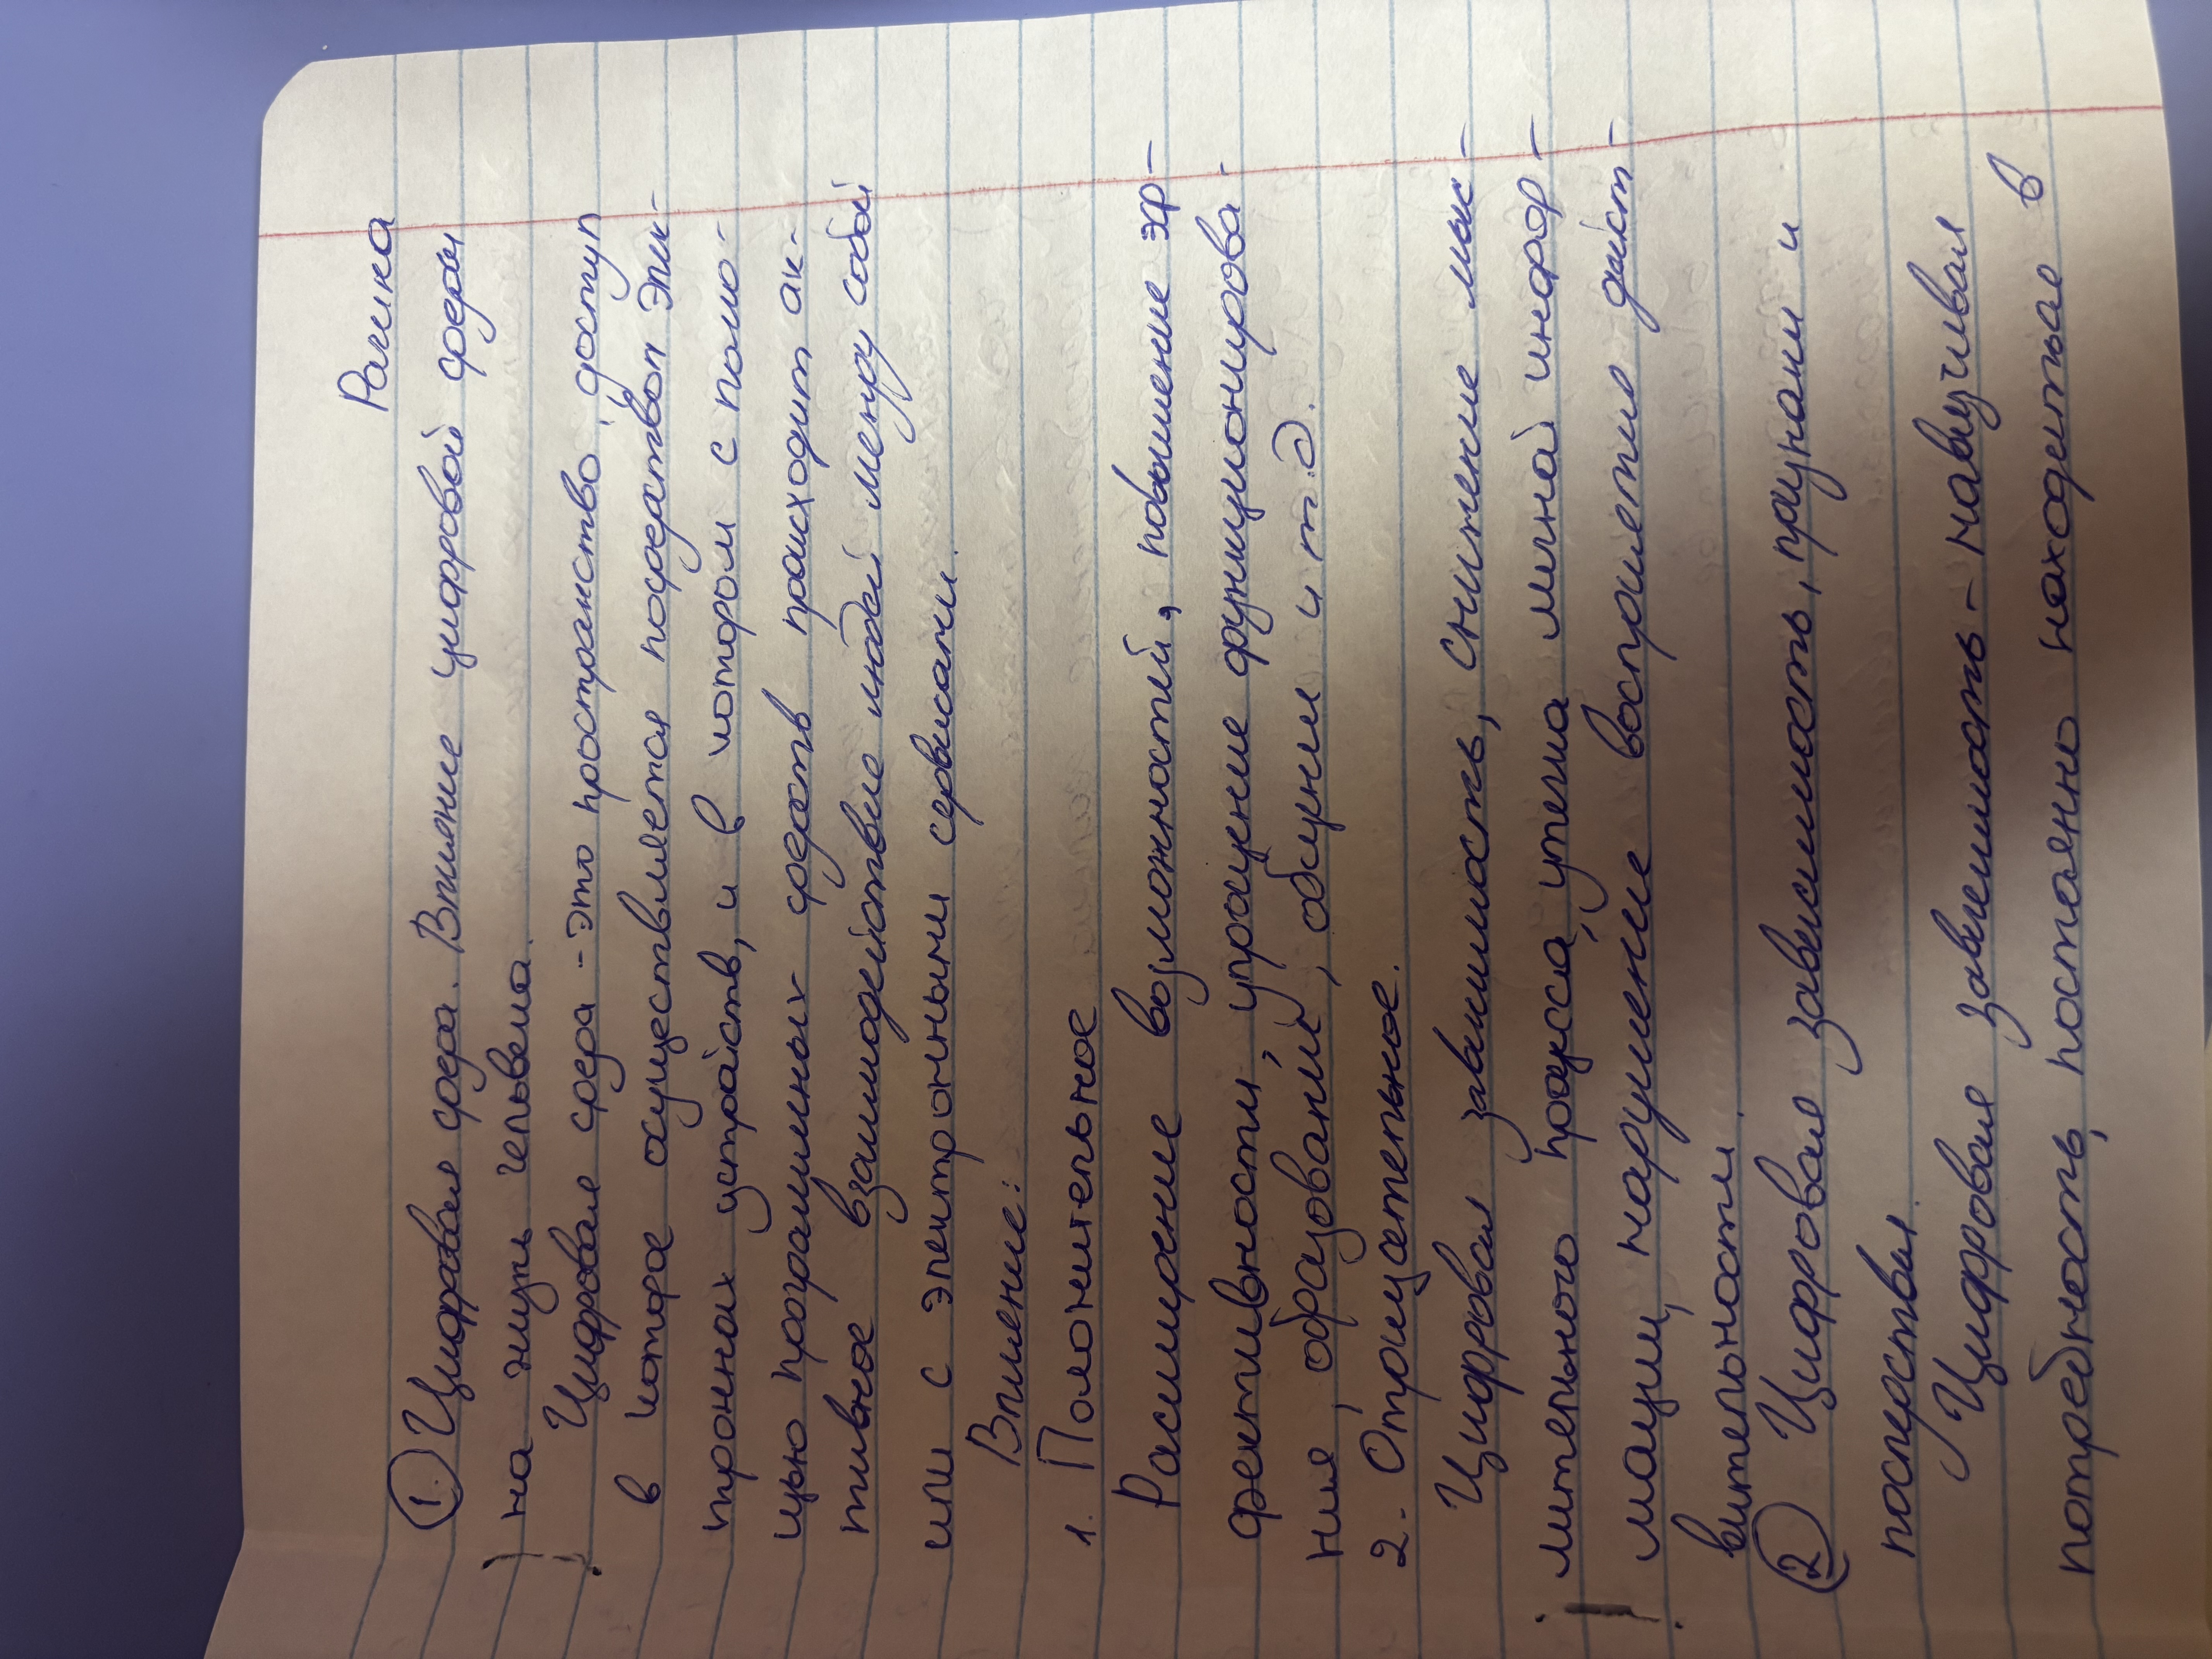 Рамка
① Цифровая среда. Влияние цифровой среды
на жизнь человека.
Цифровая среда - это пространство, доступ
в которое осуществляется посредством элек-
тронных устройств, и в котором с помо-
щью программных средств происходит ак-
тивное взаимодействие людей между собой
или с электронными сервисами.
Влияние:
1. Положительное
Расширение возможностей, повышение эф-
фективности, упрощение функционирова-
ния, образование, общении и т.д.
2. Отрицательное.
Цифровая зависимость, снижение мыс-
лительного процесса, утечка личной инфор-
мации, нарушение восприятие дейст-
вительности.
② Цифровая зависимость, признаки и
последствия.
Цифровая зависимость - навязчивая
потребность, постоянно находиться в